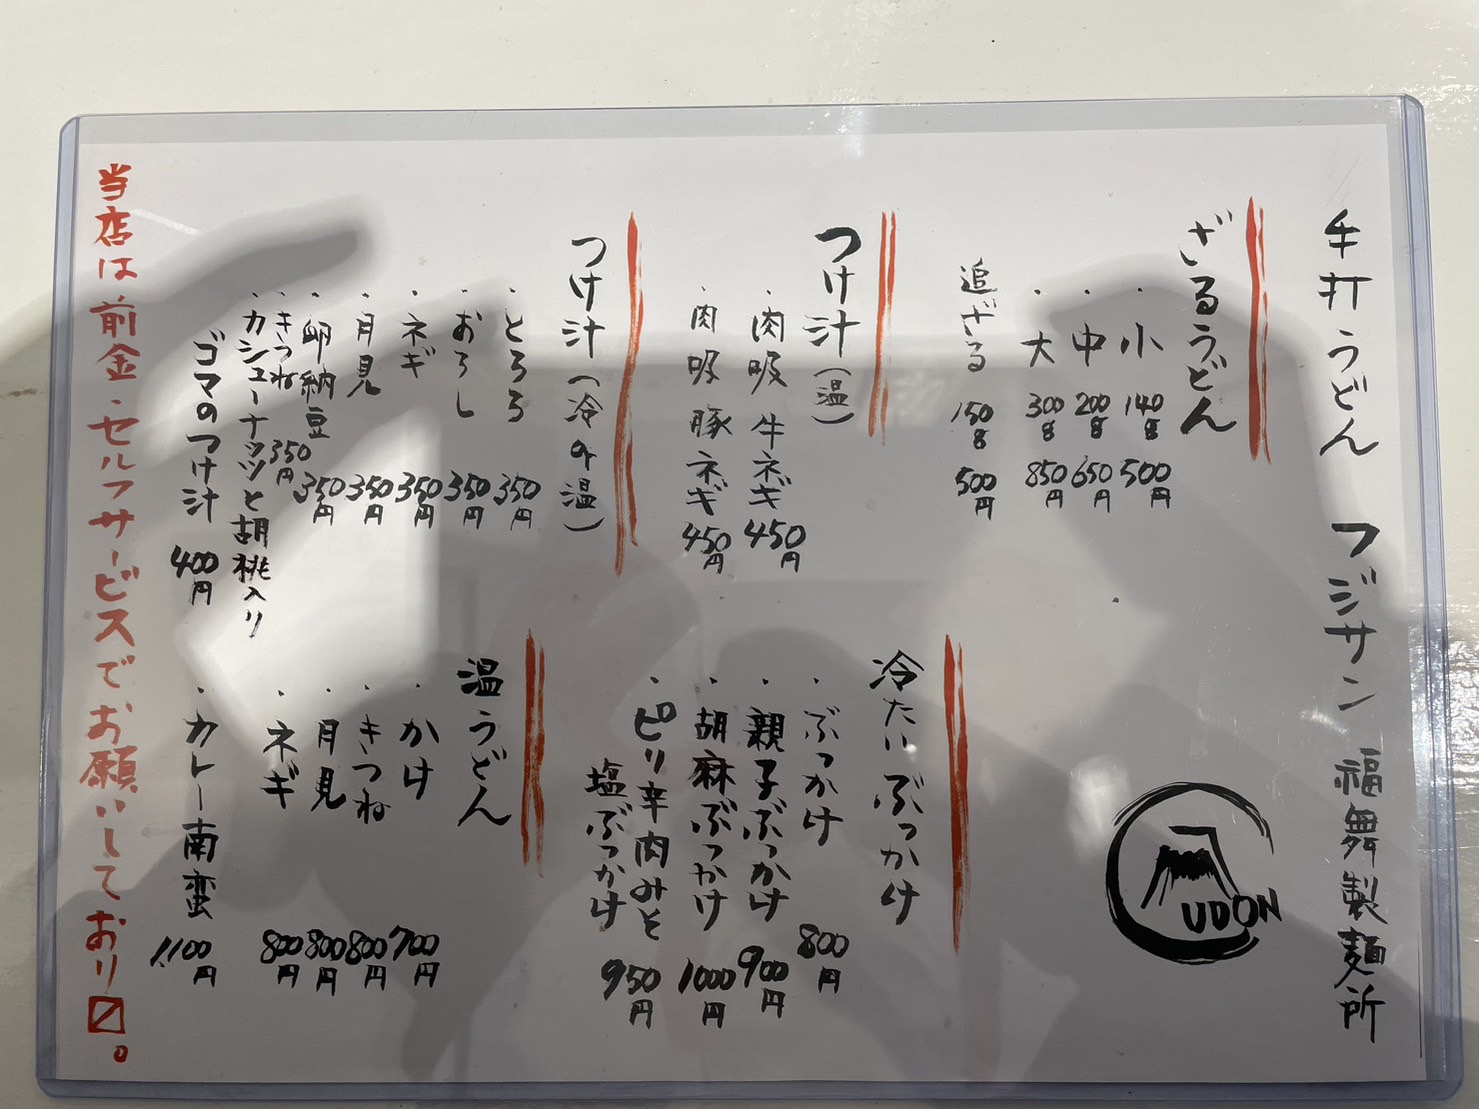 手打うどん フジサン 福舞製麺所
UDON
ざるうどん
・小 140g 500円
・中 200g 650円
・大 300g 850円
追ざる 150g 500円
つけ汁(温)
・肉吸 牛ネギ 450円
・肉吸 豚ネギ 450円
つけ汁(冷or温)
・とろろ 350円
・おろし 350円
・ネギ 350円
・月見 350円
・卵納豆 350円
・きつね 350円
・カシューナッツと胡桃入り
ゴマのつけ汁 400円
冷たいぶっかけ
・ぶっかけ 800円
・親子ぶっかけ 900円
・胡麻ぶっかけ 1000円
・ピリ辛肉みそ
塩ぶっかけ 950円
温うどん
・かけ 700円
・きつね 800円
・月見 800円
・ネギ 800円
・カレー南蛮 1,100円
当店は前金・セルフサービスでお願いしております。